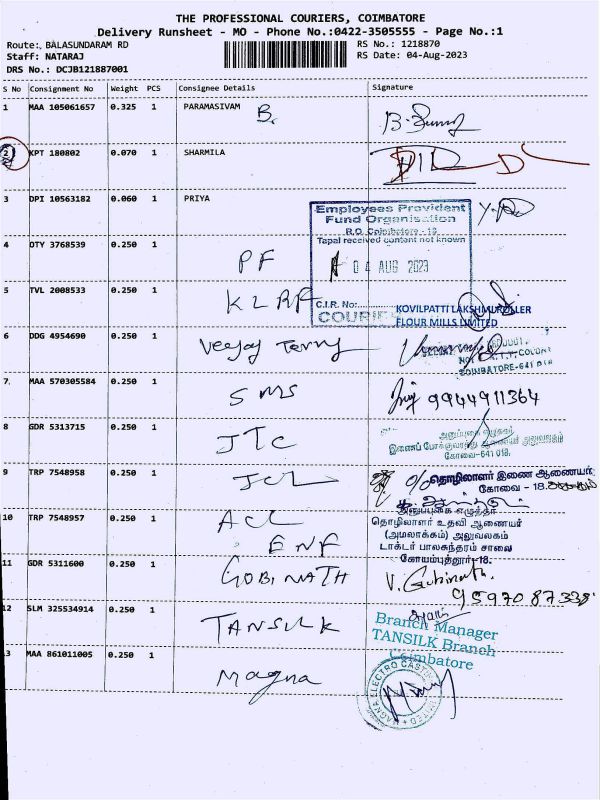 THE PROFESSIONAL COURIERS, COIMBATORE
Delivery Runsheet - MO - Phone No.:0422-3505555 - Page No.:1
Route: BALASUNDARAM RD
RS No.: 1218870
Staff: NATARAJ
RS Date: 04-Aug-2023
DRS No.: DCJB121887001
S No Consignment No Weight PCS Consignee Details Signature
1 MAA 105061657 0.325 1 PARAMASIVAM B.
2 KPT 180802 0.070 1 SHARMILA
3 DPI 10563182 0.060 1 PRIYA
Employees Provident
Fund Organisation
R.O. Coimbatore - 18
Tapal received content not known
04 AUG 2023
C.I.R. No:
COURIER
4 OTY 3768539 0.250 1 PF
5 TVL 2008533 0.250 1 KLRF
KOVILPATTI LAKSHMI ROLLER
FLOUR MILLS LIMITED
6 DDG 4954690 0.250 1 Veejay Terry
COIMBATORE-641 018
7 MAA 570305584 0.250 1 SMS 9944911364
8 GDR 5313715 0.250 1 JTC
கோவை-641 018.
9 TRP 7548958 0.250 1 JCL
தொழிலாளர் இணை ஆணையர்
கோவை - 18.
10 TRP 7548957 0.250 1 ACL
ENF
தொழிலாளர் உதவி ஆணையர்
(அமலாக்கம்) அலுவலகம்
டாக்டர் பாலசுந்தரம் சாலை
கோயம்புத்தூர்-18.
11 GDR 5311600 0.250 1 GOBINATH V. Gobinath.
12 SLM 325534914 0.250 1 TANSILK
Branch Manager
TANSILK Branch
Coimbatore
13 MAA 861011005 0.250 1 Magna
MAGNA ELECTRO CASTINGS LIMITED